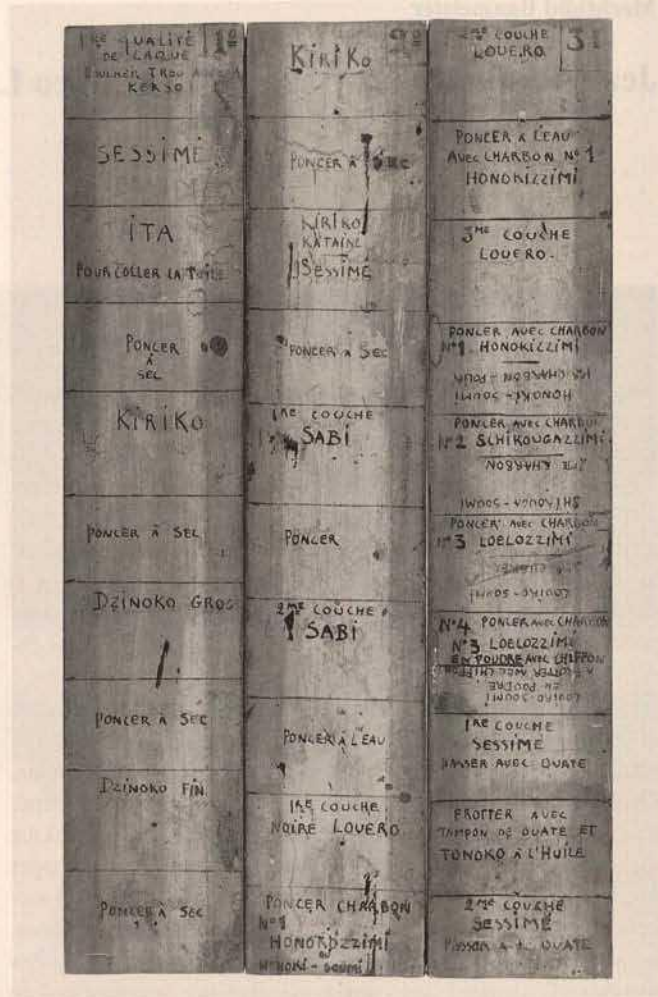 1RE QUALITÉ
DE LAQUE
KERSO
1º
SESSIMÉ
ITA
POUR COLLER LA TOILE
PONCER
À
SEC
KIRIKO
PONCER À SEC
DZINOKO GROS
PONCER À SEC
DZINOKO FIN
PONCER À SEC
KIRIKO
PONCER À SEC
KIRIKO
KATAINE
SESSIMÉ
PONCER À SEC
1RE COUCHE
SABI
PONCER
2ME COUCHE
SABI
PONCER À L'EAU
1RE COUCHE
NOIRE LOUERO
PONCER CHARBON
Nº1
HONOKIZZIMI
OU
HONOKI - SOUMI
2ME COUCHE
LOUERO
3º
PONCER À L'EAU
AVEC CHARBON Nº 1
HONOKIZZIMI
3ME COUCHE
LOUERO.
PONCER AVEC CHARBON
Nº1. HONOKIZZIMI
CHARBON - POUR
HONOKI - SOUMI
PONCER AVEC CHARBON
Nº2 SCHIROUGAZZIMI
2ME CHARBON
SHIROUGA - SOUMI
PONCER AVEC CHARBON
Nº3 LOELOZZIMI
LOUIRO - SOUMI
Nº4 PONCER AVEC CHARBON
Nº3 LOELOZZIMI
EN POUDRE AVEC CHIFFON
À FROTTER AVEC CHIFFON
EN POUDRE
LOUIRO SOUMI
1RE COUCHE
SESSIME
PASSER AVEC OUATE
FROTTER AVEC
TAMPON DE OUATE ET
TONOKO À L'HUILE
2ME COUCHE
SESSIMÉ
PASSER À L OUATE